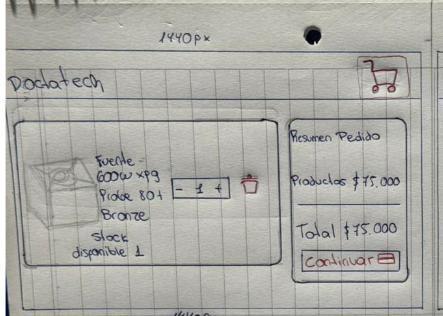 1440px
Dodatech
Fuente -
600w xpg
Probe 80+
Bronze
- 1 +
stock
disponible 1
Resumen Pedido
Productos $75.000
Total $75.000
Continuar